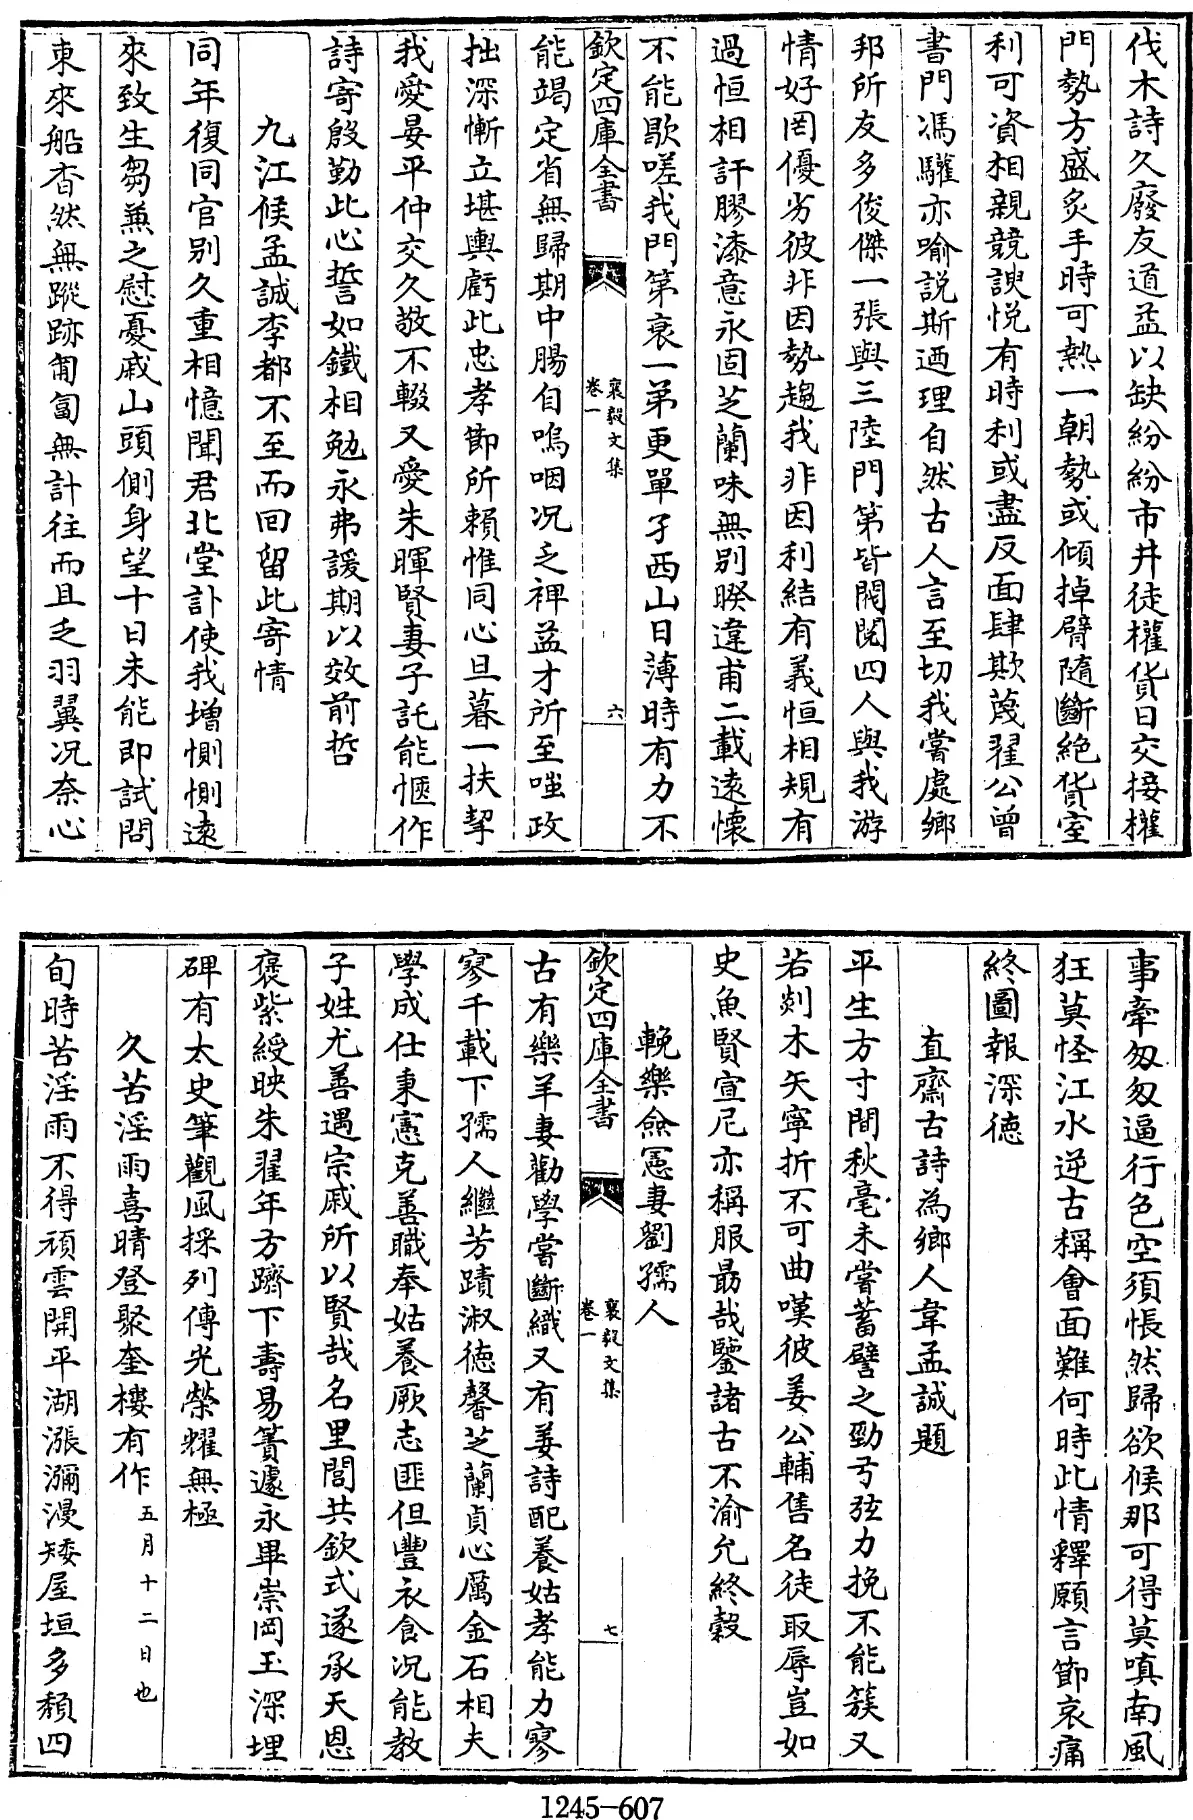 伐木詩久廢友道益以缺紛紛市井徒權貨日交接權
門勢方盛炙手時可熱一朝勢或傾掉臂隨斷絶貨室
利可資相親競諛悦有時利或盡反面肆欺蔑翟公曾
書門馮驩亦喻説斯迺理自然古人言至切我嘗處鄉
邦所友多俊傑一張與三陸門第皆閥閲四人與我游
情好罔優劣彼非因勢趨我非因利結有義恒相規有
過恒相訐膠漆意永固芝蘭味無别暌違甫二載遠懷
不能歇嗟我門第衰一弟更單孑西山日薄時有力不
欽定四庫全書
襄毅文集
卷一
六
能竭定省無歸期中腸自嗚咽况乏裨益才所至嗤政
拙深慚立堪輿虧此忠孝節所賴惟同心旦暮一扶挈
我愛晏平仲交久敬不輟又愛朱暉賢妻子託能愜作
詩寄殷勤此心誓如鐵相勉永弗諼期以效前哲
九江候孟誠李都不至而回留此寄情
同年復同官别久重相憶聞君北堂訃使我增惻惻遠
來致生芻兼之慰憂戚山頭側身望十日未能即試問
東來船杳然無蹤跡匍匐無計往而且乏羽翼况奈心
事牽匆匆逼行色空須悵然歸欲候那可得莫嗔南風
狂莫怪江水逆古稱會面難何時此情釋願言節哀痛
終圖報深徳
直齋古詩為鄉人韋孟誠題
平生方寸間秋毫未嘗蓄譬之勁弓弦力挽不能簇又
若剡木矢寧折不可曲嘆彼姜公輔售名徒取辱豈如
史魚賢宣尼亦稱服勗哉鑒諸古不渝允終穀
輓樂僉憲妻劉孺人
欽定四庫全書
襄毅文集
卷一
七
古有樂羊妻勸學嘗斷織又有姜詩配養姑孝能力寥
寥千載下孺人繼芳蹟淑徳馨芝蘭貞心厲金石相夫
學成仕秉憲克善職奉姑養厥志匪但豐衣食况能教
子姓尤善遇宗戚所以賢哉名里閭共欽式遂承天恩
褒紫綬映朱翟年方躋下壽易簀遽永畢崇岡玉深埋
碑有太史筆觀風採列傳光榮耀無極
久苦淫雨喜晴登聚奎樓有作五月十二日也
旬時苦淫雨不得頑雲開平湖漲瀰漫矮屋垣多頹四
1245-607